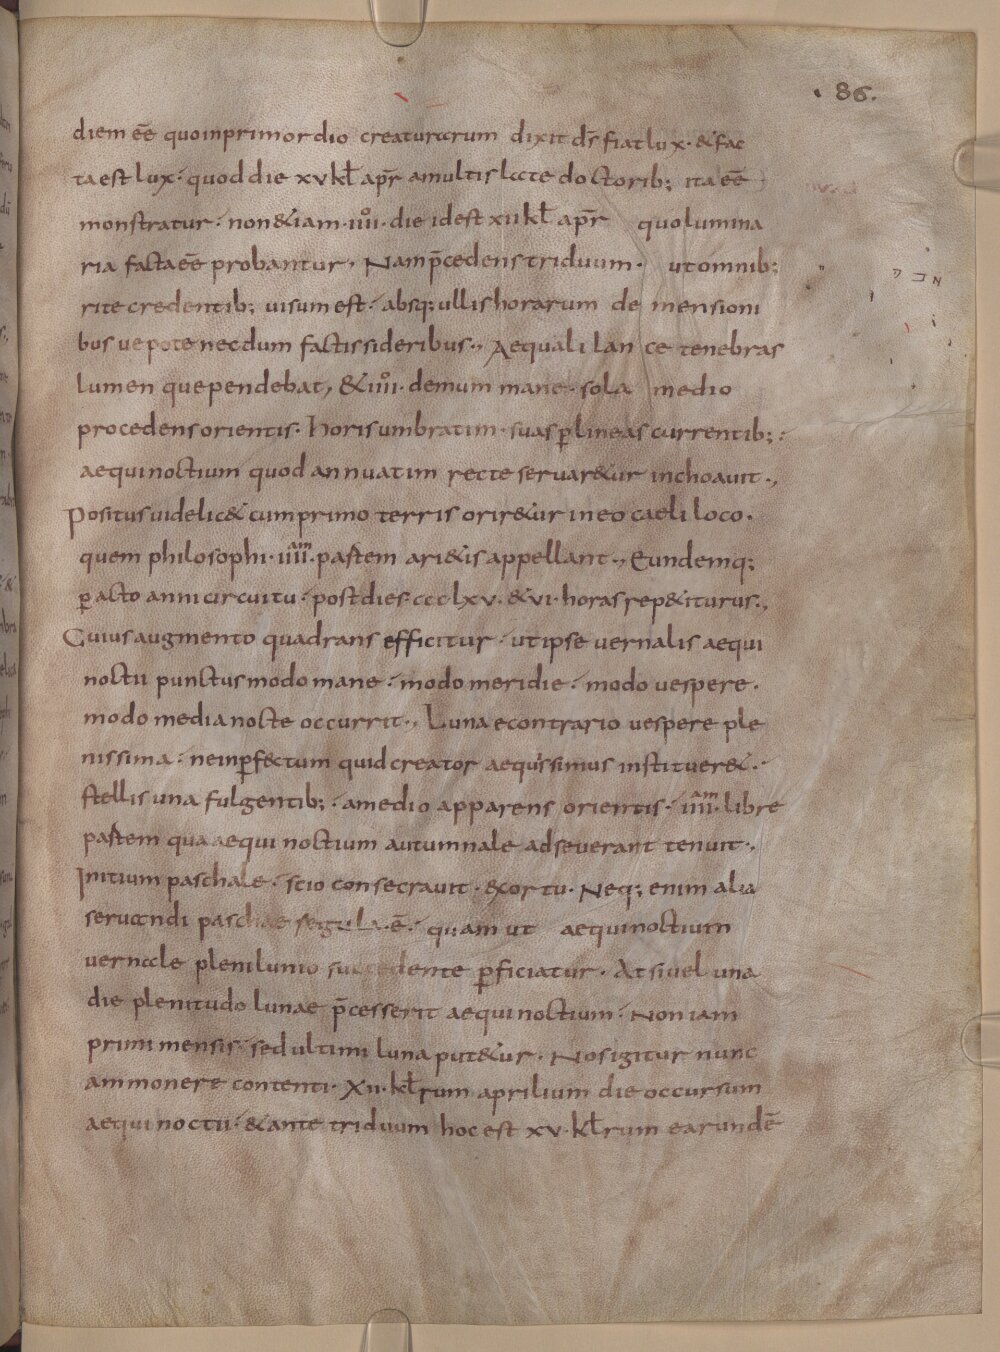 · 86.
diem eē quoinprimordio creaturarum dixit ds̄ fiatlux· &fac
taest lux· quod die xv kl̄ apr̄ amultis lacte doctorib; ita eē
monstratur· non&iam· iiii͞o· die idest xii kl̄ apr̄ quo lumina
ria facta eē probantur, Nam p̄cedens triduum· ut omnib;
rite credentib; uisum est· absq; ullis horarum de mensioni
bus ue pote necdum factis sideribus·, Aequali lan ce tenebras
lumen que pendebat, & iiii͞o· demum mane· sola medio
procedens orientis· Horis umbratim· suas ꝑlineas currentib; :
aequinoctium quod annuatim recte seruar&ur inchoauit·,
Positus uidelic& cum primo terris orir&ur in eo caeli loco·
quem philosophi· iiii͞am· pastem ari&is appellant·, Eundemq;
ꝑ acto anni circuitu· post dies· ccclxv· & vi· horas rep&iturus·,
Cuius augmento quadrans efficitur· ut ipse uernalis aequi
noctii punctus modo mane· modo meridie· modo uespere·
modo media nocte occurrit·, Luna econtrario uespere ple
nissima· ne inꝑf&tum quid creator aequissimus instituer&·
stellis una fulgentib;· amedio apparens orientis· iiii͞am· libre
pastem qua aequi noctium autumnale adseuerant tenuit·,
Initium paschale· s cio consecrauit· &ortu· Neq; enim alia
seruandi paschae regula ē· quam ut aequinoctium
uernale plenilunio succedente ꝑficiatur· At si uel una
die plenitudo lunae p̄cesserit aequinoctium· Non iam
primi mensis· sed ultimi luna put&ur· Nos igitur nunc
ammonere contenti· Xii· kl̄rum aprilium die occursum
aequi noctii· & ante triduum hoc est xv· kl̄rum earundē